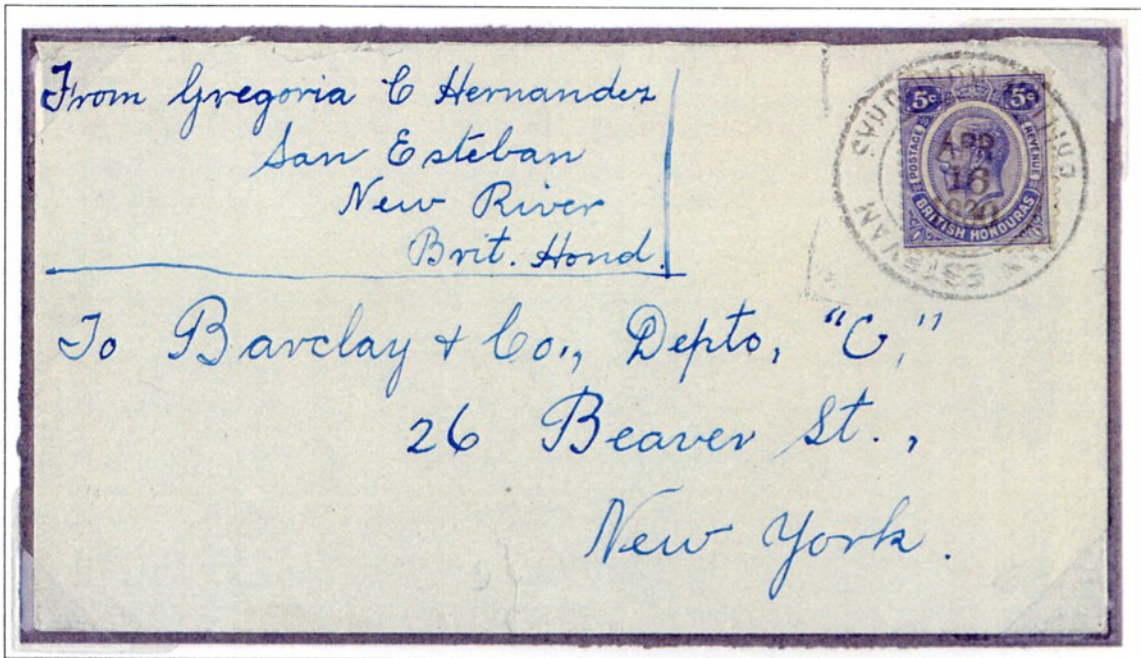 From Gregoria C Hernandez
San Esteban
New River
Brit. Hond.
5c 5c
POSTAGE REVENUE
BRITISH HONDURAS
APR
16
1930
To Barclay & Co., Depto, "C,"
26 Beaver St.,
New York.